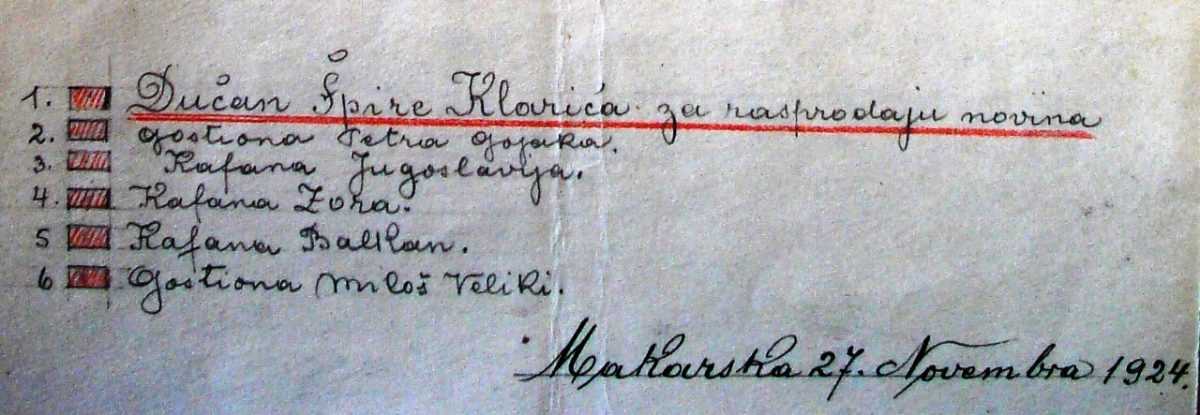 1. Dučan Špire Klarića za rasprodaju novina
2. Gostiona Petra Gojaka.
3. Kafana Jugoslavija.
4. Kafana Zora.
5 Kafana Balkan.
6 Gostiona Miloš Veliki.
Makarska 27. Novembra 1924.